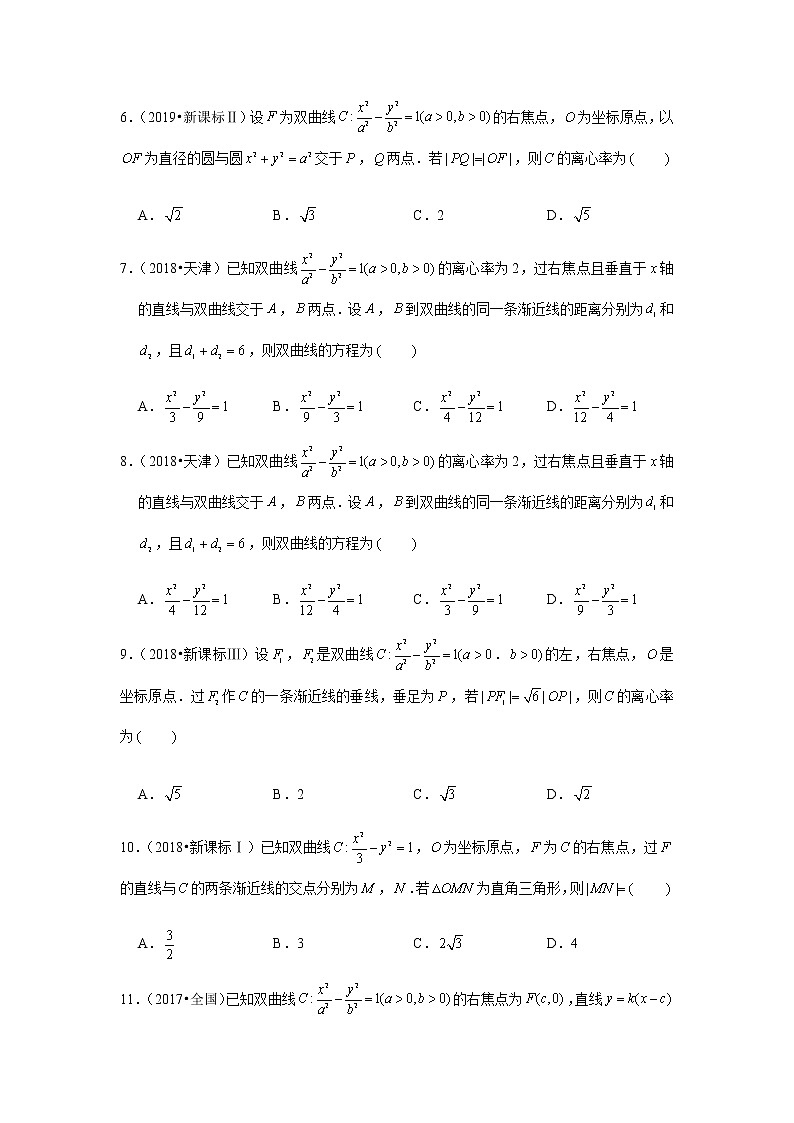 6.(2019•新课标Ⅱ)设F为双曲线C:x²/a²-y²/b²=1(a>0,b>0)的右焦点,O为坐标原点,以
OF为直径的圆与圆x²+y²=a²交于P,Q两点.若|PQ|=|OF|,则C的离心率为( )
A.√2 B.√3 C.2 D.√5
7.(2018•天津)已知双曲线x²/a²-y²/b²=1(a>0,b>0)的离心率为2,过右焦点且垂直于x轴
的直线与双曲线交于A,B两点.设A,B到双曲线的同一条渐近线的距离分别为d₁和
d₂,且d₁+d₂=6,则双曲线的方程为( )
A.x²/3-y²/9=1 B.x²/9-y²/3=1 C.x²/4-y²/12=1 D.x²/12-y²/4=1
8.(2018•天津)已知双曲线x²/a²-y²/b²=1(a>0,b>0)的离心率为2,过右焦点且垂直于x轴
的直线与双曲线交于A,B两点.设A,B到双曲线的同一条渐近线的距离分别为d₁和
d₂,且d₁+d₂=6,则双曲线的方程为( )
A.x²/4-y²/12=1 B.x²/12-y²/4=1 C.x²/3-y²/9=1 D.x²/9-y²/3=1
9.(2018•新课标Ⅲ)设F₁,F₂是双曲线C:x²/a²-y²/b²=1(a>0.b>0)的左,右焦点,O是
坐标原点.过F₂作C的一条渐近线的垂线,垂足为P,若|PF₁|=√6|OP|,则C的离心率
为( )
A.√5 B.2 C.√3 D.√2
10.(2018•新课标Ⅰ)已知双曲线C:x²/3-y²=1,O为坐标原点,F为C的右焦点,过F
的直线与C的两条渐近线的交点分别为M,N.若△OMN为直角三角形,则|MN|=( )
A.3/2 B.3 C.2√3 D.4
11.(2017•全国)已知双曲线C:x²/a²-y²/b²=1(a>0,b>0)的右焦点为F(c,0),直线y=k(x-c)